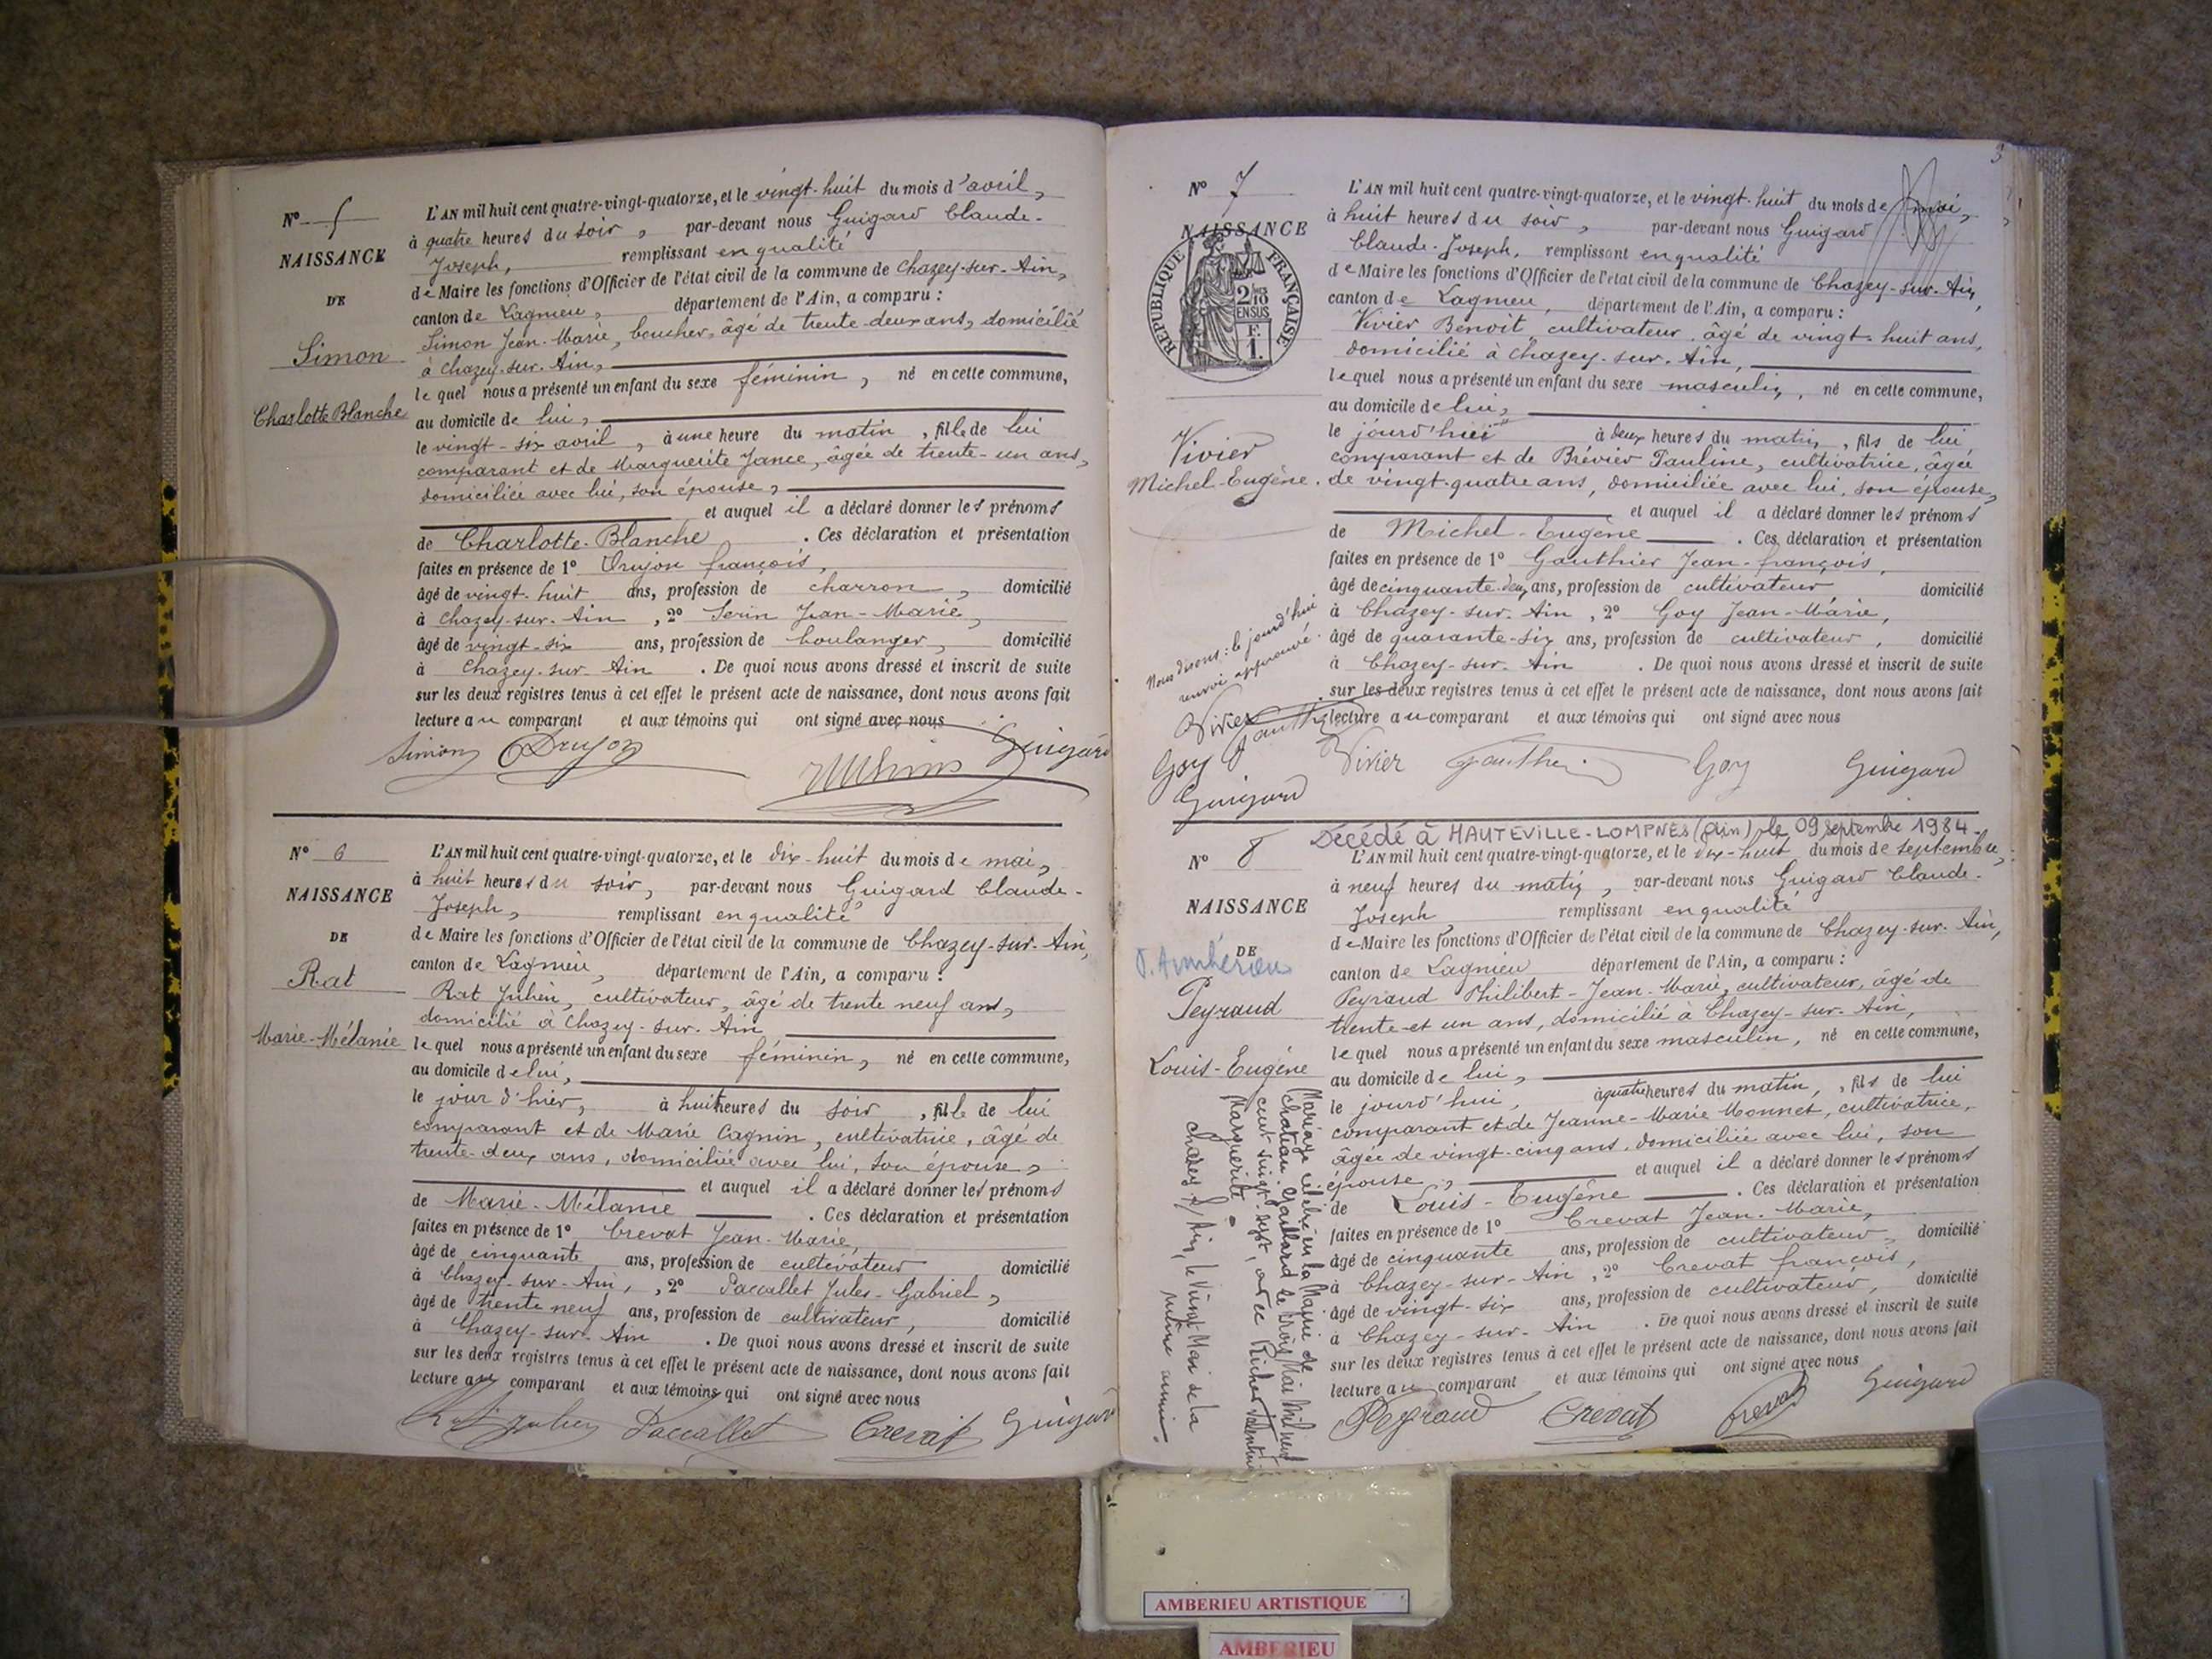 N° 5
NAISSANCE
DE
Simon
Charlotte Blanche
L'AN mil huit cent quatre-vingt-quatorze, et le vingt-huit du mois d'avril,
à quatre heures du soir, par-devant nous Guigard Claude-
Joseph, remplissant en qualité
de Maire les fonctions d'Officier de l'état civil de la commune de Chazey-sur-Ain,
canton de Lagnieu, département de l'Ain, a comparu :
Simon Jean-Marie, boucher, âgé de trente-deux ans, domicilié
à Chazey-sur-Ain,
lequel nous a présenté un enfant du sexe féminin, né en cette commune,
au domicile de lui,
le vingt-six avril, à une heure du matin, fille de lui
comparant et de Marguerite Jance, âgée de trente-un ans,
domiciliée avec lui, son épouse,
et auquel il a déclaré donner les prénoms
de Charlotte-Blanche . Ces déclaration et présentation
faites en présence de 1° Drujon françois,
âgé de vingt-huit ans, profession de charron, domicilié
à Chazey-sur-Ain, 2° Serin Jean-Marie,
âgé de vingt-six ans, profession de boulanger, domicilié
à Chazey-sur-Ain . De quoi nous avons dressé et inscrit de suite
sur les deux registres tenus à cet effet le présent acte de naissance, dont nous avons fait
lecture au comparant et aux témoins qui ont signé avec nous
Simon Drujon Guigard
N° 6
NAISSANCE
DE
Rat
Marie-Mélanie
L'AN mil huit cent quatre-vingt-quatorze, et le dix-huit du mois de mai,
à huit heures du soir, par-devant nous Guigard Claude-
Joseph, remplissant en qualité
de Maire les fonctions d'Officier de l'état civil de la commune de Chazey-sur-Ain,
canton de Lagnieu, département de l'Ain, a comparu :
Rat Julien, cultivateur, âgé de trente neuf ans,
domicilié à Chazey-sur-Ain
lequel nous a présenté un enfant du sexe féminin, né en cette commune,
au domicile de lui,
le jour d'hier, à huit heures du soir, fille de lui
comparant et de Marie Cagnin, cultivatrice, âgé de
trente-deux ans, domiciliée avec lui, son épouse,
et auquel il a déclaré donner les prénoms
de Marie-Mélanie . Ces déclaration et présentation
faites en présence de 1° Crevat Jean-Marie,
âgé de cinquante ans, profession de cultivateur domicilié
à Chazey-sur-Ain, 2° Paccallet Jules-Gabriel,
âgé de trente neuf ans, profession de cultivateur, domicilié
à Chazey-sur-Ain . De quoi nous avons dressé et inscrit de suite
sur les deux registres tenus à cet effet le présent acte de naissance, dont nous avons fait
lecture au comparant et aux témoins qui ont signé avec nous
Rat Julien Paccallet Crevat Guigard
3
N° 7
NAISSANCE
RÉPUBLIQUE FRANÇAISE
2/10 EN SUS
F. 1.
Vivier
Michel-Eugène.
L'AN mil huit cent quatre-vingt-quatorze, et le vingt-huit du mois de mai,
à huit heures du soir, par-devant nous Guigard
Claude-Joseph, remplissant en qualité
de Maire les fonctions d'Officier de l'état civil de la commune de Chazey-sur-Ain,
canton de Lagnieu, département de l'Ain, a comparu :
Vivier Benoit, cultivateur, âgé de vingt-huit ans,
domicilié à Chazey-sur-Ain,
lequel nous a présenté un enfant du sexe masculin, né en cette commune,
au domicile de lui,
le jourd'hui à deux heures du matin, fils de lui
comparant et de Brévier Pauline, cultivatrice, âgée
de vingt-quatre ans, domiciliée avec lui, son épouse,
et auquel il a déclaré donner les prénoms
de Michel-Eugène . Ces déclaration et présentation
faites en présence de 1° Gauthier Jean-françois,
âgé de cinquante-deux ans, profession de cultivateur domicilié
à Chazey-sur-Ain, 2° Goy Jean-Marie,
âgé de quarante-six ans, profession de cultivateur, domicilié
à Chazey-sur-Ain . De quoi nous avons dressé et inscrit de suite
sur les deux registres tenus à cet effet le présent acte de naissance, dont nous avons fait
lecture au comparant et aux témoins qui ont signé avec nous
Nous disons : le jourd'hui
renvoi approuvé.
Vivier Gauthier
Goy
Guigard
Vivier Gauthier Goy Guigard
Décédé à HAUTEVILLE-LOMPNES (Ain) le 09 septembre 1984.
N° 8
NAISSANCE
DE
Peyraud
Louis-Eugène
L'AN mil huit cent quatre-vingt-quatorze, et le dix-huit du mois de septembre,
à neuf heures du matin, par-devant nous Guigard Claude-
Joseph remplissant en qualité
de Maire les fonctions d'Officier de l'état civil de la commune de Chazey-sur-Ain,
canton de Lagnieu département de l'Ain, a comparu :
Peyraud Philibert-Jean-Marie, cultivateur, âgé de
trente et un ans, domicilié à Chazey-sur-Ain,
lequel nous a présenté un enfant du sexe masculin, né en cette commune,
au domicile de lui,
le jourd'hui, à quatre heures du matin, fils de lui
comparant et de Jeanne-Marie Monnet, cultivatrice,
âgée de vingt-cinq ans, domiciliée avec lui, son
épouse, et auquel il a déclaré donner les prénoms
de Louis-Eugène . Ces déclaration et présentation
faites en présence de 1° Crevat Jean-Marie,
âgé de cinquante ans, profession de cultivateur, domicilié
à Chazey-sur-Ain, 2° Crevat françois,
âgé de vingt-six ans, profession de cultivateur, domicilié
à Chazey-sur-Ain . De quoi nous avons dressé et inscrit de suite
sur les deux registres tenus à cet effet le présent acte de naissance, dont nous avons fait
lecture au comparant et aux témoins qui ont signé avec nous
Peyraud Crevat Crevat Guigard
Mariage célébré en la Mairie de
Chateau-Gaillard le trois Mai Mil neuf
cent vingt-sept, avec Richer Valentine
Marguerite.
Chazey s/ Ain, le Vingt Mai de la
même année.
AMBERIEU ARTISTIQUE
AMBERIEU